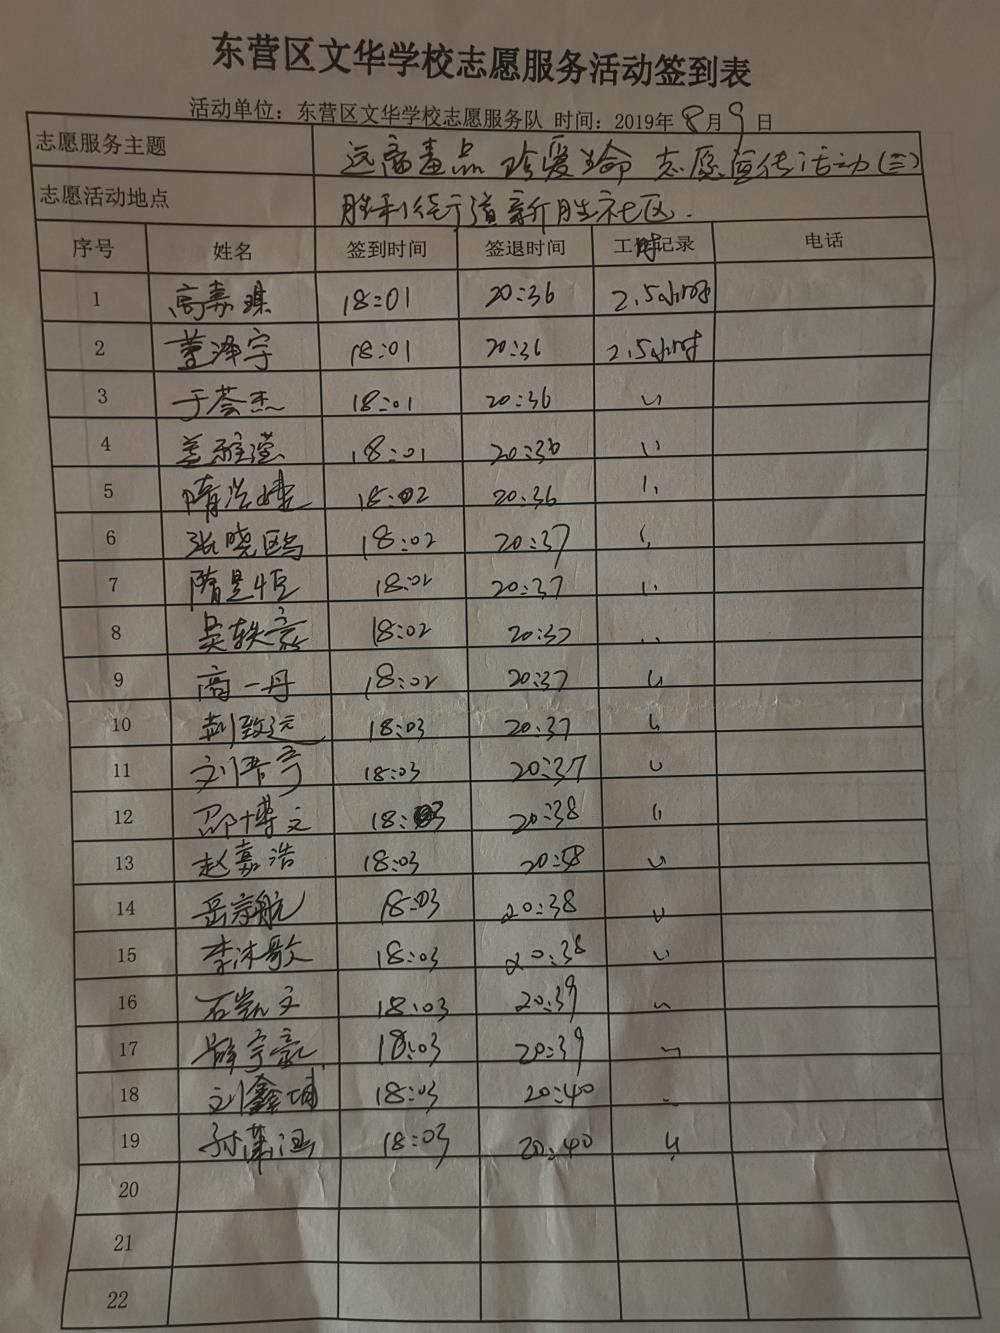 东营区文华学校志愿服务活动签到表
活动单位：东营区文华学校志愿服务队 时间：2019年 8月 9日
志愿服务主题 远离毒品 珍爱生命 志愿宣传活动(三)
志愿活动地点 胜利街道新胜社区.
序号 姓名 签到时间 签退时间 工时记录 电话
1 高嘉琪 18:01 20:36 2.5小时
2 董泽宇 18:01 20:36 2.5小时
3 于荟杰 18:01 20:36 〃
4 盖雅滢 18:01 20:36 〃
5 隋浩婕 18:02 20:36 〃
6 张晓鸥 18:02 20:37 〃
7 隋昱恒 18:02 20:37 〃
8 吴轶豪 18:02 20:37 〃
9 高一丹 18:02 20:37 〃
10 致远 18:03 20:37 〃
11 刘晋亨 18:03 20:37 〃
12 邵博文 18:03 20:38 〃
13 赵嘉浩 18:03 20:38 〃
14 岳宗航 18:03 20:38 〃
15 李沐歌 18:03 20:38 〃
16 石凯文 18:03 20:39 〃
17 薛宇豪 18:03 20:39 〃
18 刘鑫埔 18:03 20:40 〃
19 孙潇涵 18:03 20:40 〃
20
21
22